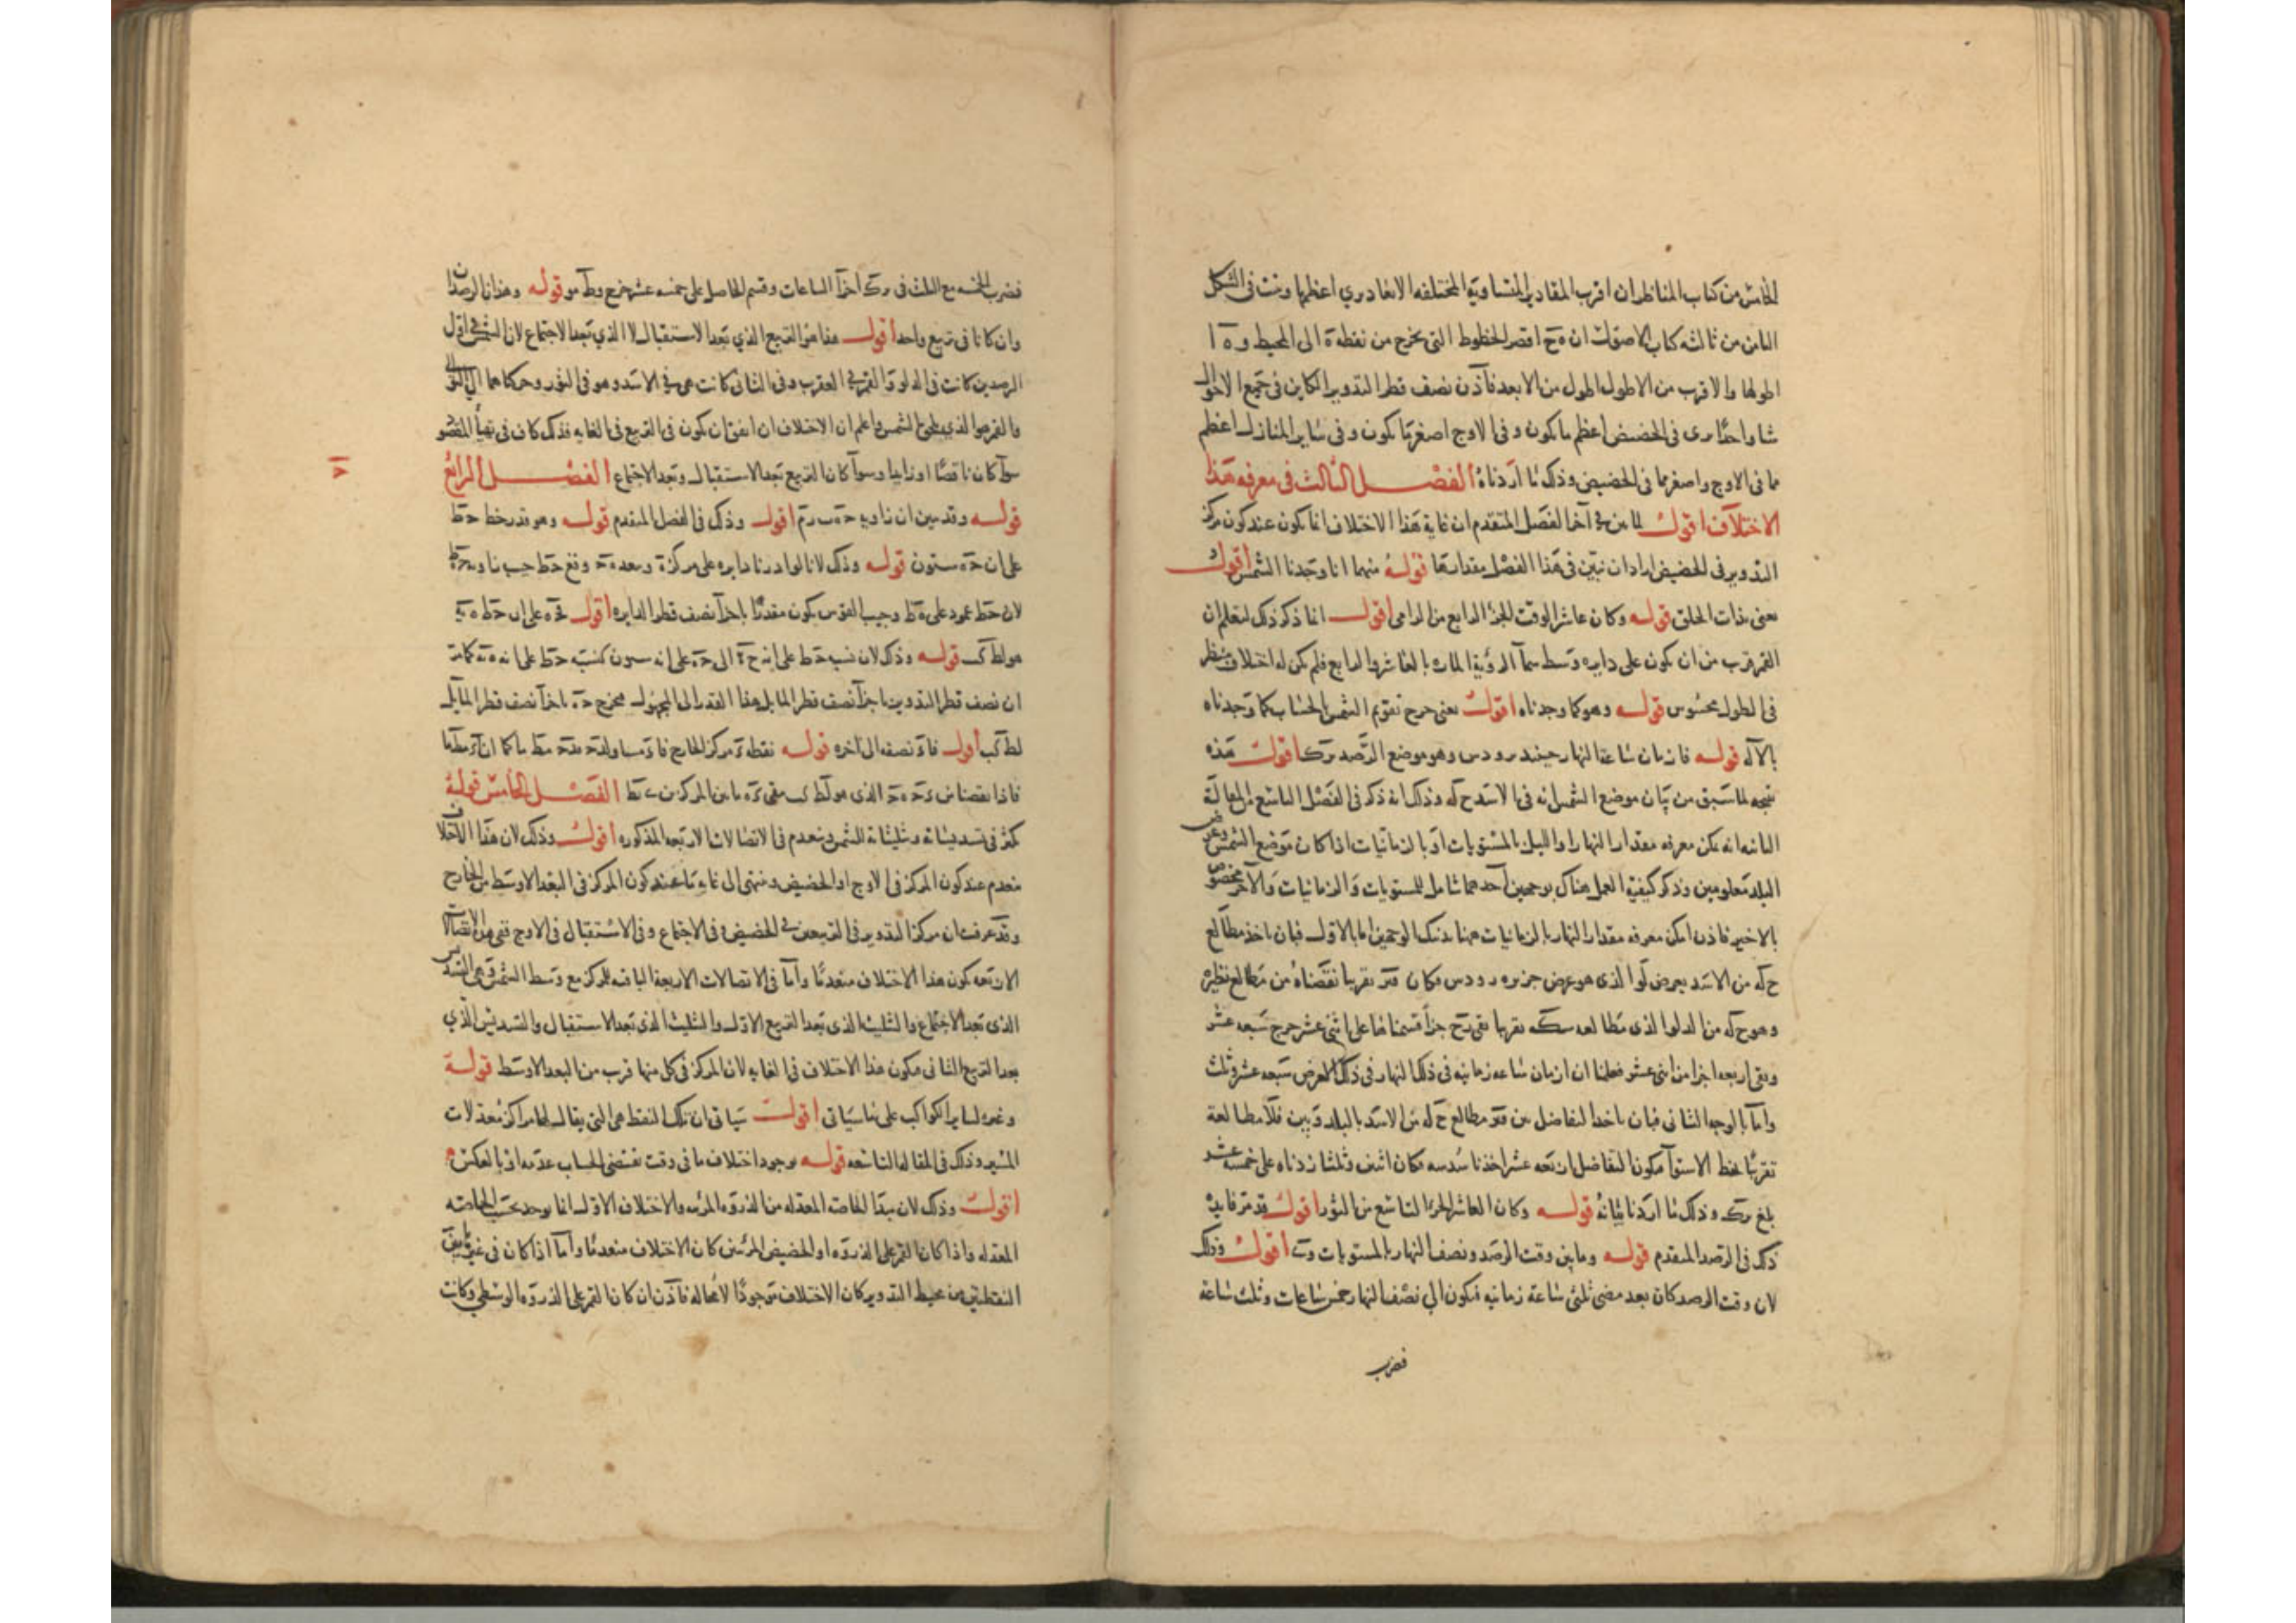 الخامس من كتاب المناظر ان اقرب المقادير المتساوية المختلفه الابعاد يري اعظمها وثبت في الشكل
الثامن من ثالثه كتاب الاصول ان ه ح اقصر الخطوط التي تخرج من نقطة ه الى المحيط و ه ا
اطولها والاقرب من الاطول اطول من الابعد فاذن نصف قطر التدوير الكاين في جميع الاحوال
شيا واحدا يرى في الحضيض اعظم ما يكون وفي الاوج اصغر ما يكون وفي ساير المنازل اعظم
مما في الاوج واصغر مما في الحضيض وذلك ما اردناه الفصل الثالث في معرفه هذا
الاختلاف اقول لما بين في آخر الفصل المتقدم ان غاية هذا الاختلاف انما يكون عند كون مركز
التدوير في الحضيض اراد ان يبين في هذا الفصل مقدارها قوله منهما انا وجدنا الشمس اقول
يعنى بذات الحلق قوله وكان عاشر الوقت الجزء الرابع من الرامى اقول انما ذكر ذلك ليعلم ان
القمر قرب من ان يكون على دايره وسط سمآ الرؤية الماره بالعاشر والرابع فلم يكن له اختلاف منظر
في الطول محسوس قوله وهو كما وجدناه اقول يعنى خرج تقويم الشمس بالحساب كما وجدناه
بالآله قوله فازمان ساعة النهار حينئذ برودس وهو موضع الرصد اقول هذه
نتيجه لما سبق من بيان موضع الشمس انه في الاسد ح له وذلك انه ذكر في الفصل التاسع من المقالة
الثانيه انه يمكن معرفه مقدار النهار او الليل بالمستويات او بالزمانيات اذا كان موضع الشمس وعرض
البلد معلومين وذكر كيفية العمل هناك بوجهين احدهما شامل للمستويات والزمانيات والآخر مخصوص
بالاخير فاذن امكن معرفه مقدار النهار بالزمانيات ههنا بذينك الوجهين اما بالاول فبان ناخذ مطالع
ح له من الاسد بعرض لو الذي هو عرض جزيره رودس فكان تقريبا نقصناه من مطالع نظيره
وهو ح له من الدلو الذي مطالعه تقريبا بقي جزأ قسمناها على اثنى عشر خرج سبعه عشر
وبقي اربعه اجزا من اثنى عشر فعلمنا ان ازمان ساعه زمانيه في ذلك النهار في ذلك العرض سبعه عشر وثلث
واما بالوجه الثاني فبان ناخذ التفاضل بين مطالع ح له من الاسد بالبلد وبين مطالعه
تقريبا بخط الاستوآ فيكون التفاضل اربعه عشر اخذنا سدسه فكان اثنين وثلثا زدناه على خمسة عشر
بلغ وذلك ما اردنا بيانه قوله وكان العاشر الجزء التاسع من الثور اقول قد مر فايدة
ذلك في الرصد المتقدم قوله وما بين وقت الرصد ونصف النهار بالمستويات اقول وذلك
لان وقت الرصد كان بعد مضي ثلثي ساعة زمانيه فيكون الي نصف النهار خمس ساعات وثلث ساعة
فضرب
فضرب الخمسه مع الثلث في اجزآ الساعات وقسم الحاصل على خمسه عشر خرج قوله وهذان الرصدان
وان كانا في تربيع واحد اقول هذا هو التربيع الذي بعد الاستقبال لا الذي بعد الاجتماع لان الشمس في اول
الرصدين كانت في الدلو والقمر في العقرب وفي الثاني كانت هي في الاسد وهو في الثور وحركاهما الى التوالي
والقمر هو الذي يلحق الشمس واعلم ان الاختلاف ان اتفق ان يكون في التربيع في الغايه فذلك كاف في تهيأ المقصود
سوآ كان ناقصا او زايدا وسوآ كان التربيع بعد الاستقبال وبعد الاجتماع الفصل الرابع
قوله وقد تبين ان زاويه اقول وذلك في الفصل المتقدم قوله وهو قدر خط ح ط
على ان ح ه ستون قوله وذلك لانا لو ادرنا دايره على مركز ه وببعد ه ح وقع ح ط جيب زاويه
لان ح ط عمود على ه ط وجيب القوس يكون مقدرا باجزآ نصف قطر الدايره اقول
قوله وذلك لان نسبه ح ط على انه الى ح ه على انه ستون كنسبة ح ط على انه
ان نصف قطر التدوير باجزآ نصف قطر المايل هذا القدر الى المجهول فيخرج ح ه باجزآ نصف قطر المايل
اول نصفه الى آخره قوله نقطه مركز الخارج
فاذا نقصنا من الذي هو ما بين المركزين الفصل الخامس قوله
يكثر في تسديساته وتثليثاته للشمس وينعدم في الاتصالات الاربعه المذكوره اقول وذلك لان هذا الاختلاف
منعدم عند كون المركز في الاوج او الحضيض وينتهى الى غايه ما عند كون المركز في البعد الاوسط من الخارج
وقد عرفت ان مركز التدوير في التربيعين في الحضيض وفي الاجتماع وفي الاستقبال في الاوج ففي هذه الاتصالات
الاربعه يكون هذا الاختلاف منعدما واما في الاتصالات الاربعة الباقيه للمركز مع وسط الشمس وهي التسديس
الذي بعد الاجتماع والتثليث الذي بعد التربيع الاول والتثليث الذي بعد الاستقبال والتسديس الذي
بعد التربيع الثاني فيكون هذا الاختلاف في الغايه لان المركز في كل منها قرب من البعد الاوسط قوله
وغيره لساير الكواكب على ما سياتي اقول سياتي ان تلك النقط هي التي يقال لها مراكز معدلات
المسير وذلك في المقاله التاسعه قوله بوجود اختلاف ما في وقت يقتضي الحساب عدمه او بالعكس
اقول وذلك لان مبدأ الخاصه المعدله من الذروه المرئيه والاختلاف الاول انما يوجد بحسب الخاصه
المعدله واذا كان القمر على الذروه او الحضيض المرئيين كان الاختلاف منعدما واما اذا كان في غير هاتين
النقطتين من محيط التدوير كان الاختلاف موجودا لا محاله فاذن ان كان القمر على الذروه الوسطي وكانت